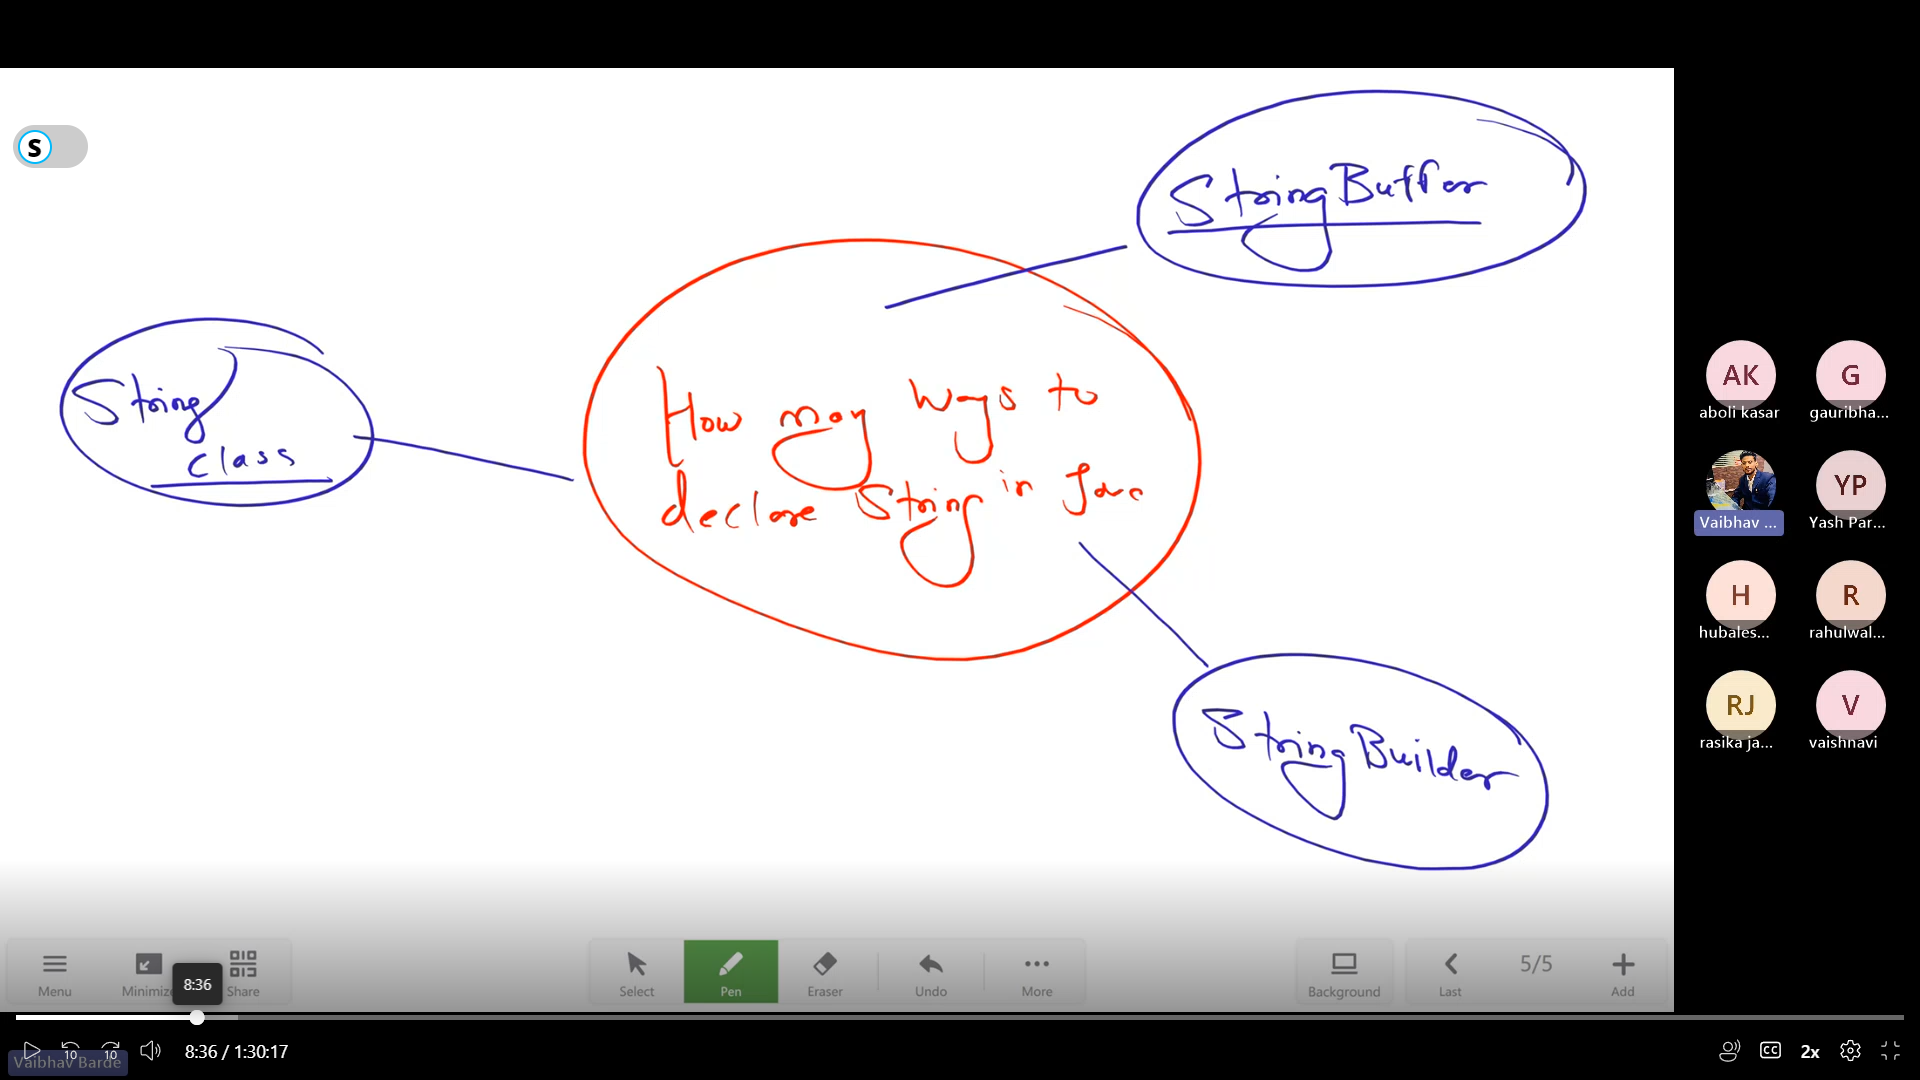 S
StringBuffer
String
class
How may ways to
declare String in Java
StringBuilder
AK
aboli kasar
G
gauribha...
Vaibhav ...
YP
Yash Par...
H
hubales...
R
rahulwal...
RJ
rasika ja...
V
vaishnavi
Menu
Minimize
8:36
Share
Select
Pen
Eraser
Undo
More
Background
Last
5/5
Add
10
10
8:36 / 1:30:17
Vaibhav Barde
CC
2x